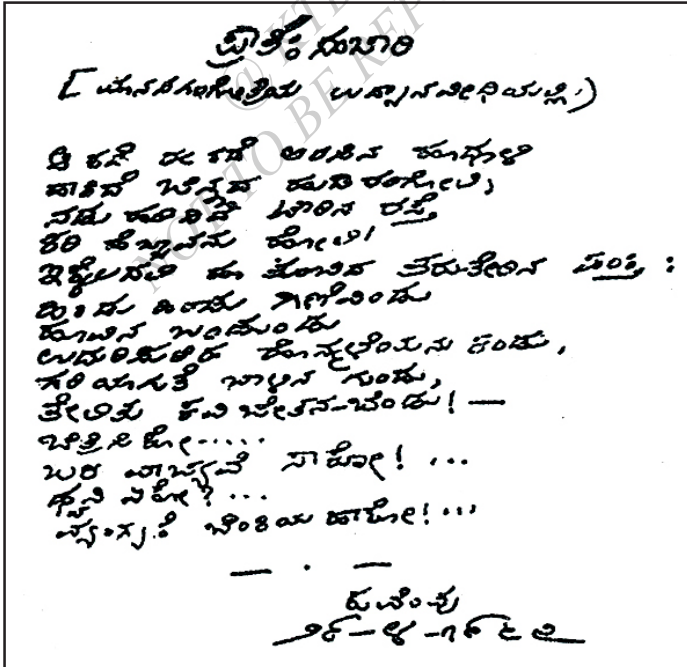 ಪ್ರಾತಃ ಸಂಚಾರಿ
[ಮಾನಸಗಂಗೋತ್ರಿಯ ಉದ್ಯಾನವೀಧಿಯಲ್ಲಿ)
ಆ ಕಡೆ ಈ ಕಡೆ ಅರಸಿನ ಹೂಧೂಳಿ
ಹಾಕಿದೆ ಚಿನ್ನದ ಹುಡಿ ರಂಗೋಲಿ;
ನಡು ಹರಿದಿದೆ ಟಾರಿನ ರಸ್ತೆ
ಕರಿ ಹೆಬ್ಬಾವನು ಹೋಲಿ!
ಇಕ್ಕೆಲದಲಿ ಹೂ ತುಂಬಿದ ತರುತೇರಿನ ಪಂಕ್ತಿ :
ಹಿಂಡು ಹಿಂಡು ಗಿಣಿವಿಂಡು
ಹೂವಿನ ಬಂಡುಂಡು
ಉದುರಿಸುತಿಹ ಹೊನ್ನಳೆಯನು ಕಂಡು,
ಗರಿಯಾಗುತೆ ಬಾಳಿನ ಗುಂಡು,
ತೇಲಿತು ಕವಿ ಚೇತನ-ಬೆಂಡು! —
ಚಿತ್ರಿಸಿಕೋ.....
ಬರಿ ವಾಚ್ಯವೆ ಸಾಕೋ! ...
ಧ್ವನಿ ಏಕೋ? ...
ವ್ಯಂಗ್ಯಕೆ ಬೆಂಕಿಯ ಹಾಕೋ! ...
— . —
ಕುವೆಂಪು
೨೯-೪-೧೯೬೨
@ KTB
NOT TO BE REP